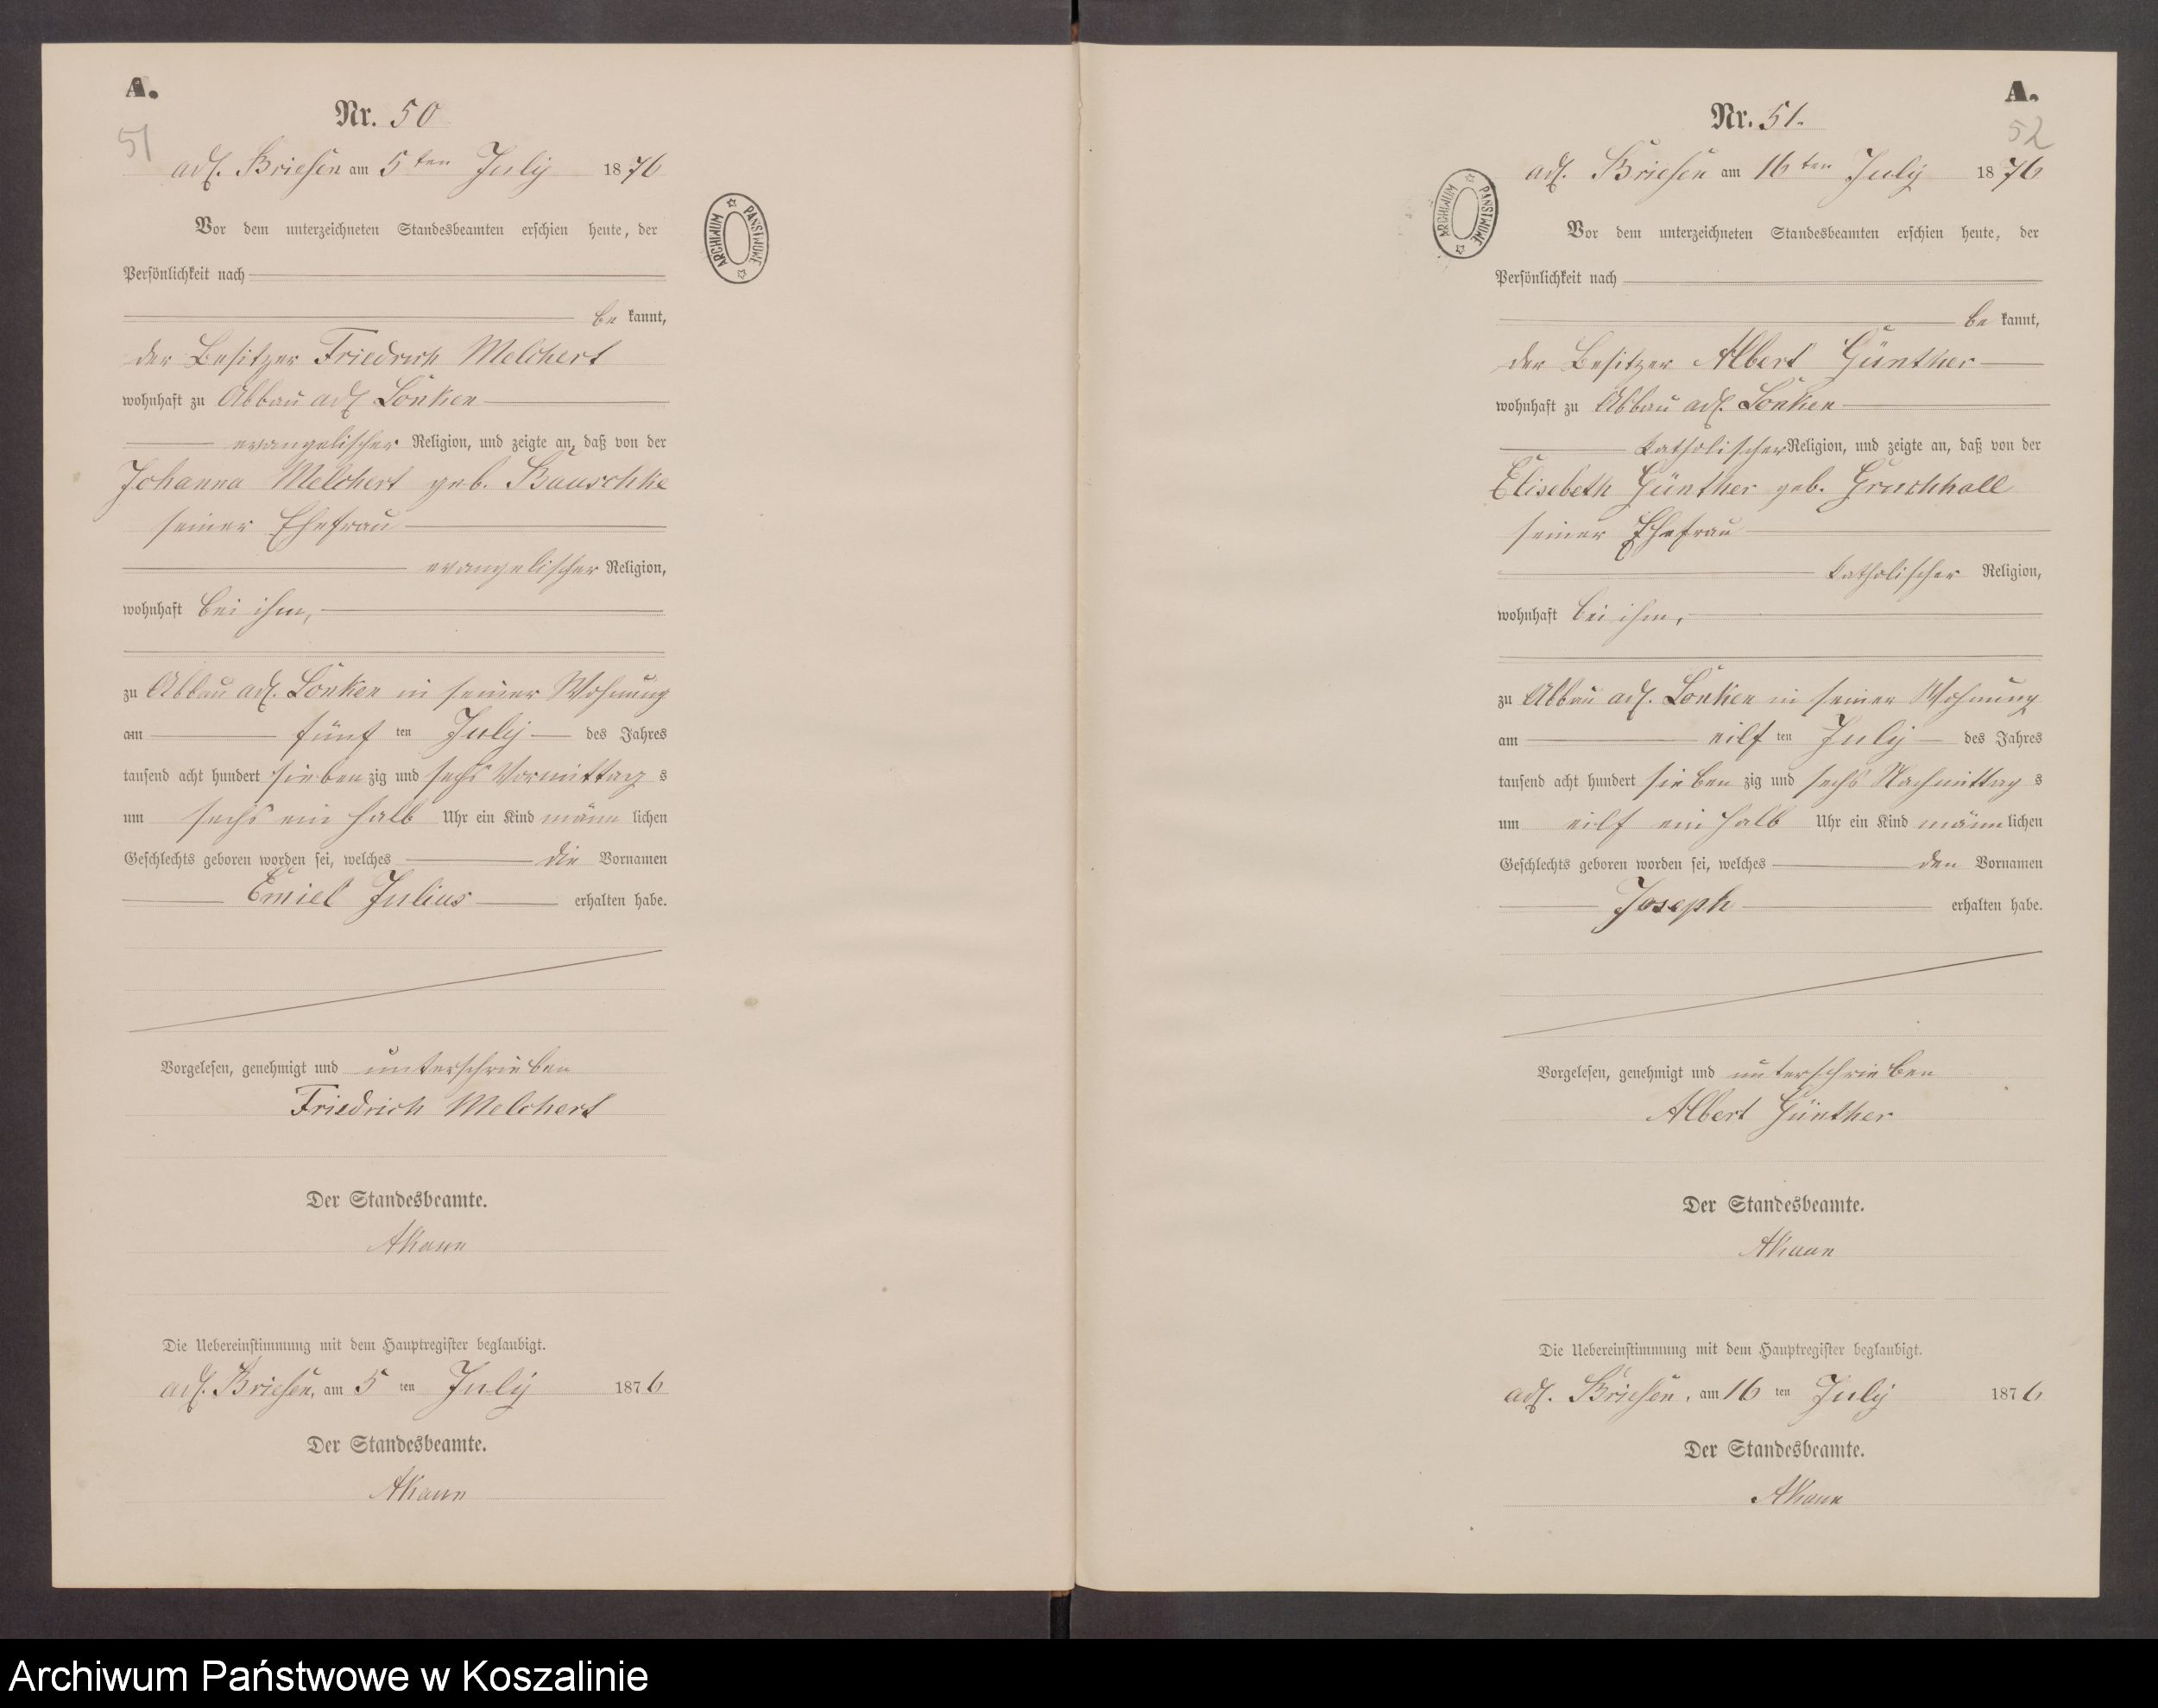 A.
Nr. 50
51
adl. Briesen am 5ten July 1876
ARCHIWUM PAŃSTWOWE
Vor dem unterzeichneten Standesbeamten erschien heute, der
Persönlichkeit nach
be kannt,
der Besitzer Friedrich Melchert
wohnhaft zu Abbau adl Lonken
evangelischer Religion, und zeigte an, daß von der
Johanna Melchert geb. Bauschke
seiner Ehefrau
evangelischer Religion,
wohnhaft bei ihm,
zu Abbau adl. Lonken in seiner Wohnung
am fünf ten July des Jahres
tausend acht hundert sieben zig und sechs Vormittag s
um sechs ein halb Uhr ein Kind männ lichen
Geschlechts geboren worden sei, welches die Vornamen
Emiel Julius erhalten habe.
Vorgelesen, genehmigt und unterschrieben
Friedrich Melchert
Der Standesbeamte.
Die Uebereinstimmung mit dem Hauptregister beglaubigt.
adl. Briesen, am 5 ten July 1876
Der Standesbeamte.
A.
Nr. 51.
52
adl. Briesen am 16ten July 1876
ARCHIWUM PAŃSTWOWE
Vor dem unterzeichneten Standesbeamten erschien heute, der
Persönlichkeit nach
be kannt,
der Besitzer Albert Günther
wohnhaft zu Abbau adl. Lonken
katholischer Religion, und zeigte an, daß von der
Elisebeth Günther geb. Gruchhall
seiner Ehefrau
katholischer Religion,
wohnhaft bei ihm,
zu Abbau adl. Lonken in seiner Wohnung
am eilf ten July des Jahres
tausend acht hundert sieben zig und sechs Nachmittag s
um eilf ein halb Uhr ein Kind männ lichen
Geschlechts geboren worden sei, welches den Vornamen
Joseph erhalten habe.
Vorgelesen, genehmigt und unterschrieben
Albert Günther
Der Standesbeamte.
Die Uebereinstimmung mit dem Hauptregister beglaubigt.
adl. Briesen, am 16 ten July 1876
Der Standesbeamte.
Archiwum Państwowe w Koszalinie